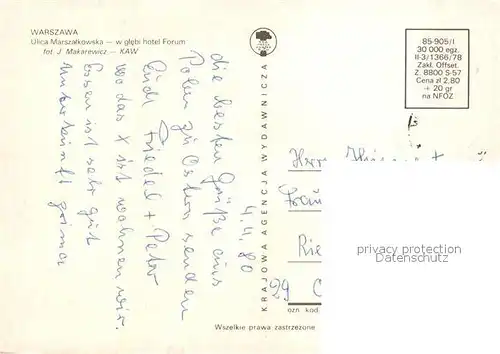 WARSZAWA
Ulica Marszałkowska — w głębi hotel Forum
fot. J. Makarewicz — KAW
85-905/I
30 000 egz.
II-3/1366/78
Zakł. Offset.
Z. 8800 S-57
Cena zł 2,80
+ 20 gr
na NFOZ
4.4.80
die besten Grüße aus
Polen zu Ostern senden
Euch Friedel + Peter
wo das x ist wohnen wir.
Essen ist sehr gut
Unterkunft prima
KRAJOWA AGENCJA WYDAWNICZA
Herrn
Frau
Rie
29
ozn. kod
privacy protection
Datenschutz
Wszelkie prawa zastrzeżone